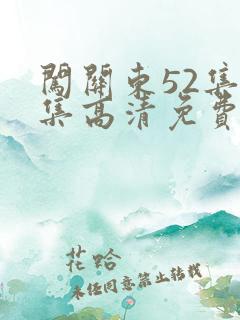 闖關東52集
集高清免費
花蛤
未经同意禁止转载